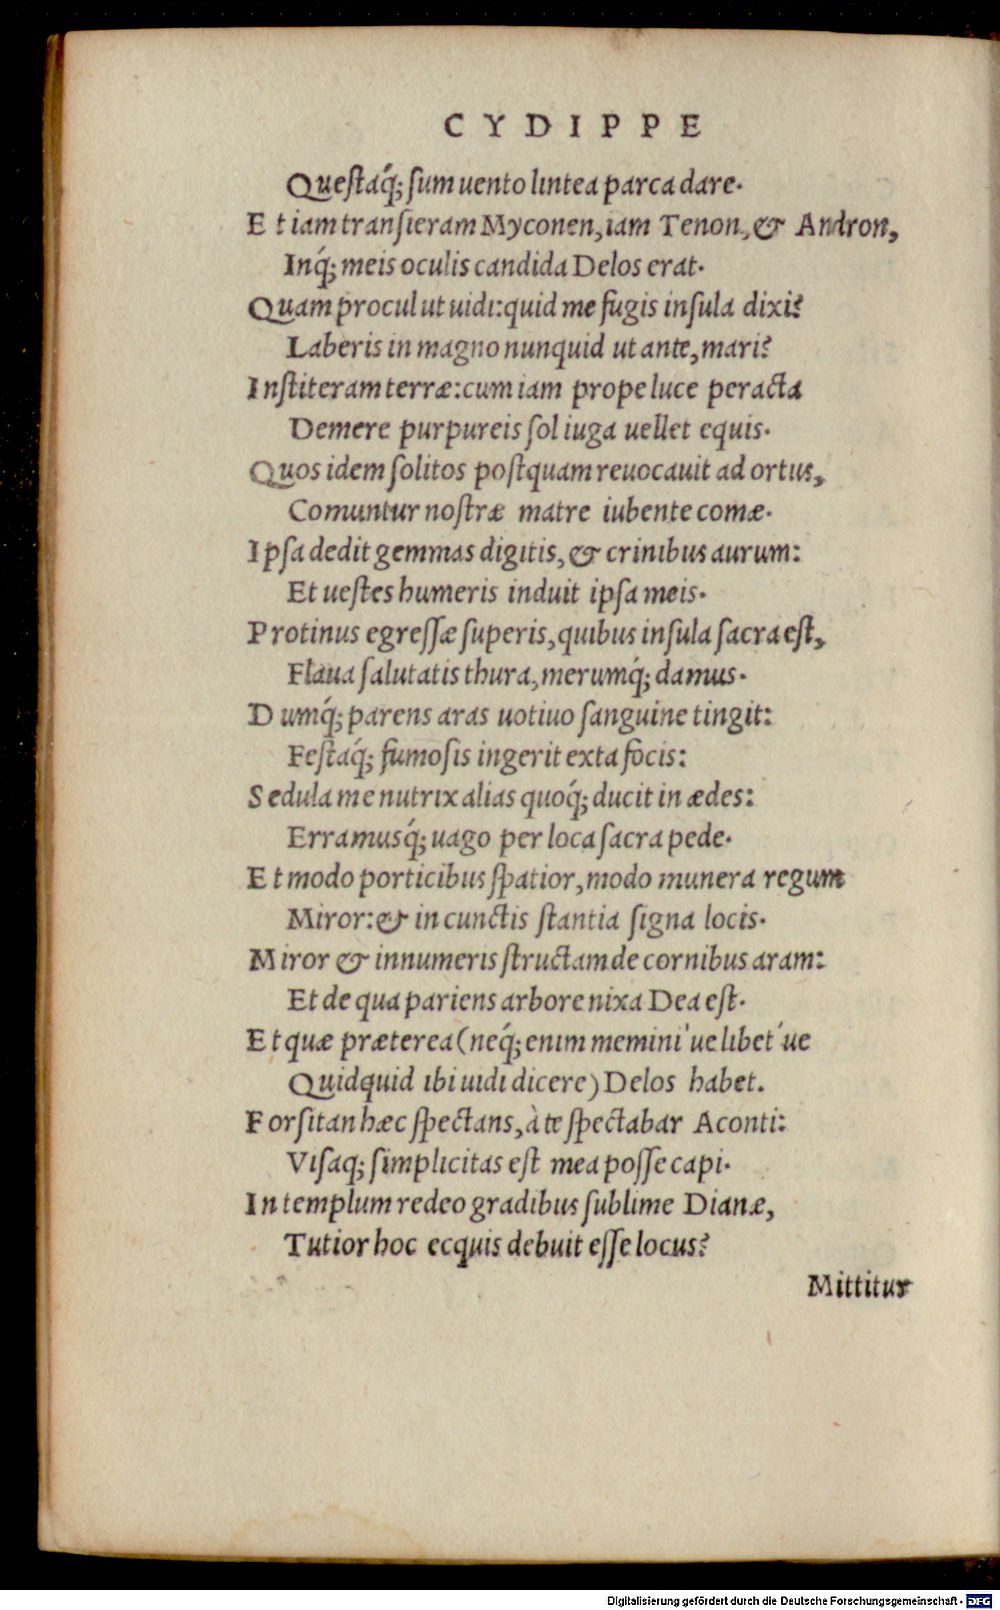 CYDIPPE
Questaq́; sum uento lintea parca dare.
Et iam transieram Myconen, iam Tenon, & Andron,
Inq́; meis oculis candida Delos erat.
Quam procul ut uidi: quid me fugis insula dixi?
Laberis in magno nunquid ut ante, mari?
Institeram terræ: cum iam prope luce peracta
Demere purpureis sol iuga uellet equis.
Quos idem solitos postquam reuocauit ad ortus,
Comuntur nostræ matre iubente comæ.
Ipsa dedit gemmas digitis, & crinibus aurum:
Et uestes humeris induit ipsa meis.
Protinus egressæ superis, quibus insula sacra est,
Flaua salutatis thura, merumq́; damus.
Dumq́; parens aras uotiuo sanguine tingit:
Festaq́; fumosis ingerit exta focis:
Sedula me nutrix alias quoq́; ducit in ædes:
Erramusq́; uago per loca sacra pede.
Et modo porticibus spatior, modo munera regum
Miror: & in cunctis stantia signa locis.
Miror & innumeris structam de cornibus aram:
Et de qua pariens arbore nixa Dea est.
Et quæ præterea (neq́; enim memini 've libet 've
Quidquid ibi uidi dicere) Delos habet.
Forsitan hæc spectans, à te spectabar Aconti:
Visaq; simplicitas est mea posse capi.
In templum redeo gradibus sublime Dianæ,
Tutior hoc ecquis debuit esse locus?
Mittitur
Digitalisierung gefördert durch die Deutsche Forschungsgemeinschaft - DFG